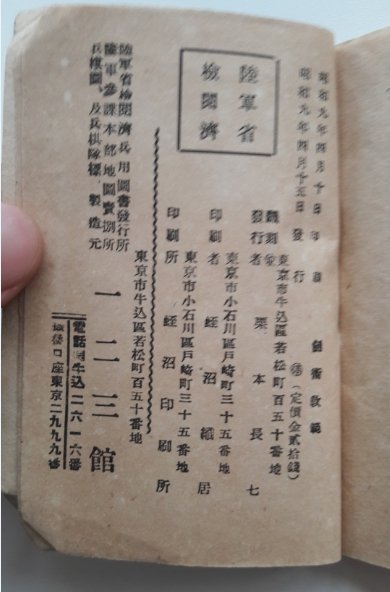 昭和九年四月十日印刷
昭和九年四月十五日發行
劍術敎範
(定價金貳拾錢)
陸軍省
檢閲濟
飜刻兼
發行者
東京市牛込區若松町百五十番地
栗本長七
東京市小石川區戸崎町三十五番地
印刷者 蛭沼織居
東京市小石川區戸崎町三十五番地
印刷所 蛭沼印刷所
東京市牛込區若松町百五十番地
陸軍省檢閲濟兵用圖書發行所
陸軍參謀本部地圖賣捌所
兵棋圖、及兵棋隊標製造元
一二三館
電話牛込二六一六番
振替口座東京二九九九番